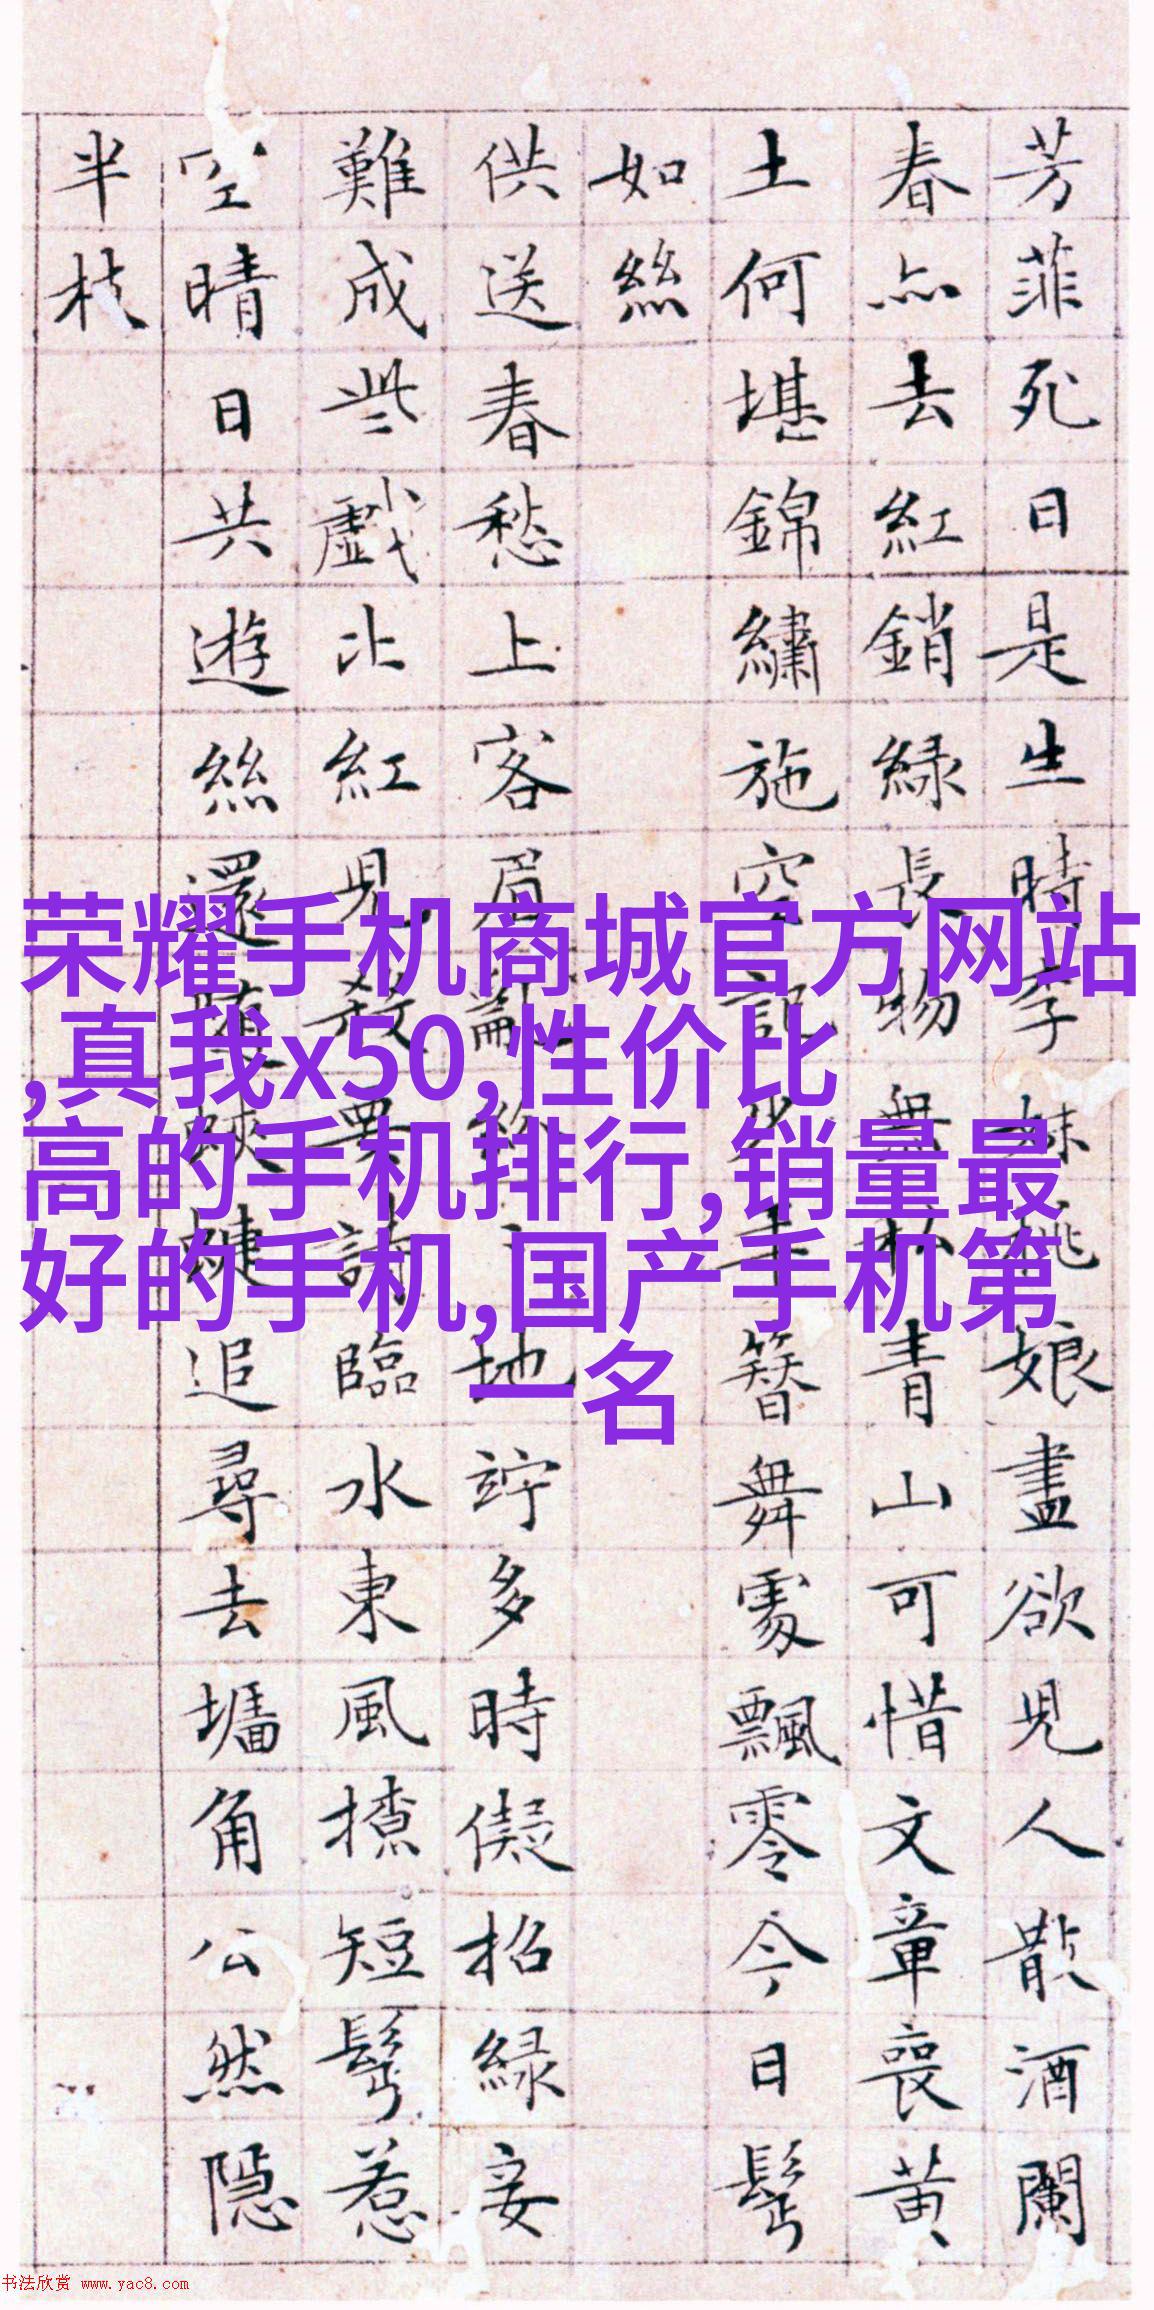 芳菲死日是生時李妹桃娘盡欲兒人散酒闌
春亦去紅銷綠長物無私青山可惜文章喪黄
土何堪錦繡施空記少年簪舞處飄零今日鬂
如絲
供送春愁上客眉亂紛〻地竚多時儗招綠妾
難成些戲比紅兒殺詩臨水東風撩短鬂惹
空晴日共遊絲還隨蛺蜨追尋去墻角公然隱
半枝
荣耀手机商城官方网站
,真我x50,性价比
高的手机排行,销量最
好的手机,国产手机第
一名
书法欣赏 www.yac8.com